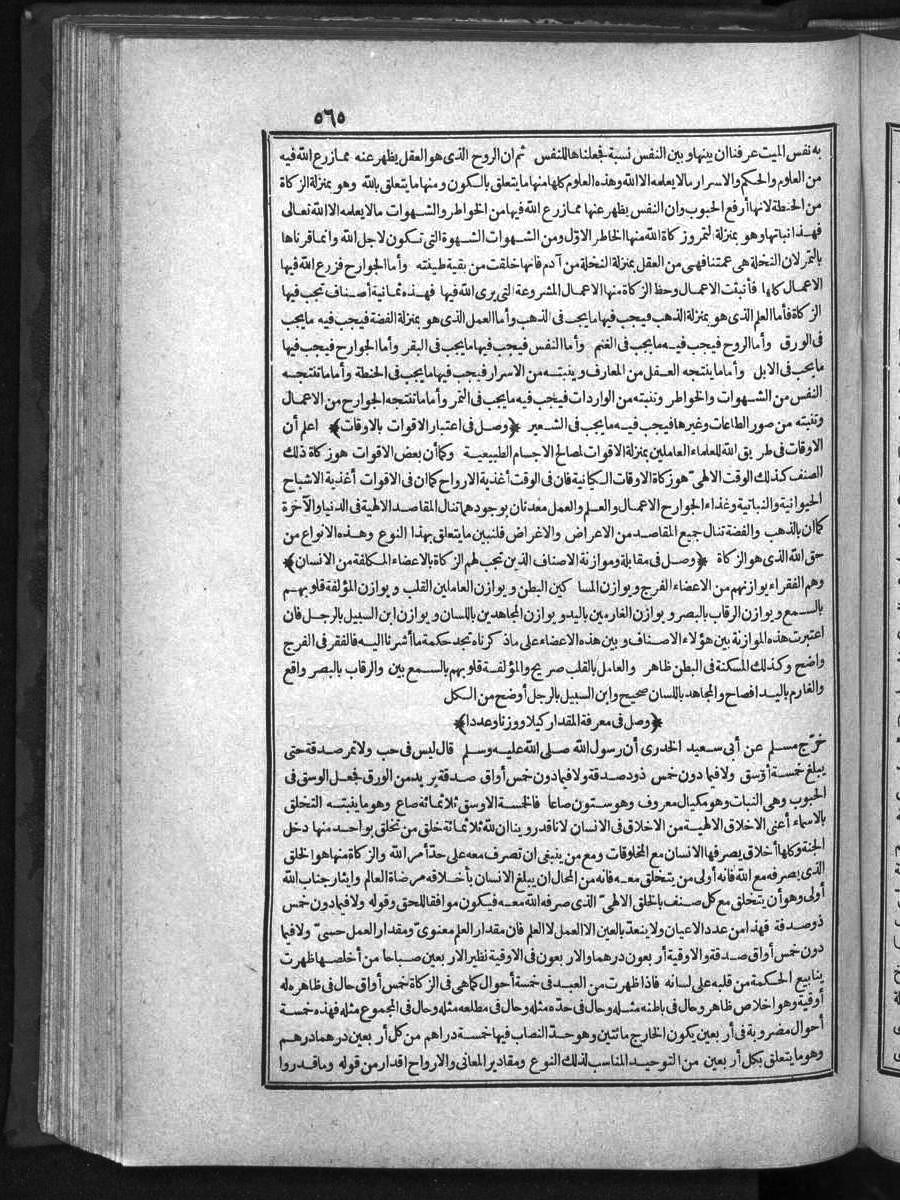 ٥٦٥
به نفس الميت عرفنا ان بينها وبين النفس نسبة فجعلناها للنفس ثم ان الروح الذى هو العقل يظهر عنه ممازرع الله فيه
من العلوم والحكم والاسرار مالا يعلمه الا الله وهذه العلوم كلها منها ما يتعلق بالكون ومنها ما يتعلق بالله وهو بمنزلة الزكاة
من الحنطة لانها أرفع الحبوب وان النفس يظهر عنها ممازرع الله فيها من الخواطر والشهوات مالا يعلمه الا الله تعالى
فهذا نباتها وهو بمنزلة التمر وزكاة الله منها الخاطر الاوّل ومن الشهوات الشهوة التى تكون لاجل الله وانما قرناها
بالتمر لان النخلة هى عمتنا فهى من العقل بمنزلة النخلة من آدم فانها خلقت من بقية طينته وأما الجوارح فزرع الله فيها
الاعمال كلها فأنبتت الاعمال وحظ الزكاة منها الاعمال المشروعة التى يرى الله فيها فهذه ثمانية أصناف تجب فيها
الزكاة فأما العلم الذى هو بمنزلة الذهب فيجب فيها مايجب فى الذهب وأما العمل الذى هو بمنزلة الفضة فيجب فيه مايجب
فى الورق وأما الروح فيجب فيه مايجب فى الغنم وأما النفس فيجب فيها مايجب فى البقر وأما الجوارح فيجب فيها
مايجب فى الابل وأما ما ينتجه العقل من المعارف وينبته من الاسرار فيجب فيها مايجب فى الحنطة وأما ما تنتجه
النفس من الشهوات والخواطر وتنبته من الواردات فيجب فيه مايجب فى التمر وأما ما تنتجه الجوارح من الاعمال
وتنبته من صور الطاعات وغيرها فيجب فيه مايجب فى الشعير ﴿وصل فى اعتبار الاقوات بالاوقات﴾ اعلم أن
الاوقات فى طريق الله للعلماء العاملين بمنزلة الاقوات لمصالح الاجسام الطبيعية وكما أن بعض الاقوات هو زكاة ذلك
الصنف كذلك الوقت الالهىّ هو زكاة الاوقات الكيانية فان فى الوقت أغذية الارواح كما ان فى الاقوات أغذية الاشباح
الحيوانية والنباتية وغذاء الجوارح الاعمال والعلم والعمل معدنان بوجودهما تنال المقاصد الالهية فى الدنيا والآخرة
كما ان بالذهب والفضة تنال جميع المقاصد من الاعراض والاغراض فلنبين ما يتعلق بهذا النوع وهذه الانواع من
حق الله الذى هو الزكاة ﴿وصل فى مقابلة وموازنة الاصناف الذين تجب لهم الزكاة بالاعضاء المكلفة من الانسان﴾
وهم الفقراء يوازنهم من الاعضاء الفرج ويوازن المساكين البطن ويوازن العاملين القلب ويوازن المؤلفة قلوبهم
بالسمع ويوازن الرقاب بالبصر ويوازن الغارمين باليد ويوازن المجاهدين باللسان ويوازن ابن السبيل بالرجل فان
اعتبرت هذه الموازنة بين هؤلاء الاصناف وبين هذه الاعضاء على ماذكرناه تجد حكمة ما أشرنا اليه فالفقر فى الفرج
واضح وكذلك المسكنة فى البطن ظاهر والعامل بالقلب صريح والمؤلفة قلوبهم بالسمع بين والرقاب بالبصر واقع
والغارم باليد افصاح والمجاهد باللسان صحيح وابن السبيل بالرجل أوضح من الكل
﴿وصل فى معرفة المقدار كيلا ووزنا وعددا﴾
خرّج مسلم عن أبى سعيد الخدرى أن رسول الله صلى الله عليه وسلم قال ليس فى حب ولا تمر صدقة حتى
يبلغ خمسة أوسق ولا فيما دون خمس ذود صدقة ولا فيما دون خمس أواق صدقة يريد من الورق فجعل الوسق فى
الحبوب وهى النبات وهو مكيال معروف وهو ستون صاعا فالخمسة الاوسق ثلاثمائة صاع وهو ما ينبته التخلق
بالاسماء أعنى الاخلاق الالهية من الاخلاق فى الانسان لانا قدروينا ان لله ثلاثمائة خلق من تخلق بواحد منها دخل
الجنة وكلها أخلاق يصرفها الانسان مع المخلوقات ومع من ينبغى ان تصرف معه على حدّ أمر الله والزكاة منها هو الخلق
الذى يصرفه مع الله فانه أولى من يتخلق معه فانه من المحال ان يبلغ الانسان بأخلاقه مرضاة العالم وايثار جناب الله
أولى وهو أن يتخلق مع كل صنف بالخلق الالهىّ الذى صرفه الله معه فيكون موافقا للحق وقوله ولا فيما دون خمس
ذود صدقة فهذا من عدد الاعيان ولا ينعدّ بالعين الا العمل لا العلم فان مقدار العلم معنوىّ ومقدار العمل حسىّ ولا فيما
دون خمس أواق صدقة والاوقية أربعون درهما والاربعون فى الاوقية نظير الاربعين صباحا من أخلصها ظهرت
ينابيع الحكمة من قلبه على لسانه فاذا ظهرت من العبد فى خمسة أحوال كما هى فى الزكاة خمس أواق حال فى ظاهره له
أوقية وهو اخلاص ظاهر وحال فى باطنه مثله وحال فى حدّه مثله وحال فى مطلعه مثله وحال فى المجموع مثله فهذه خمسة
أحوال مضروبة فى أربعين يكون الخارج مائتين وهو حدّ النصاب فيها خمسة دراهم من كل أربعين درهما درهم
وهو ما يتعلق بكل أربعين من التوحيد المناسب لذلك النوع ومقادير المعانى والارواح اقدار من قوله وما قدروا